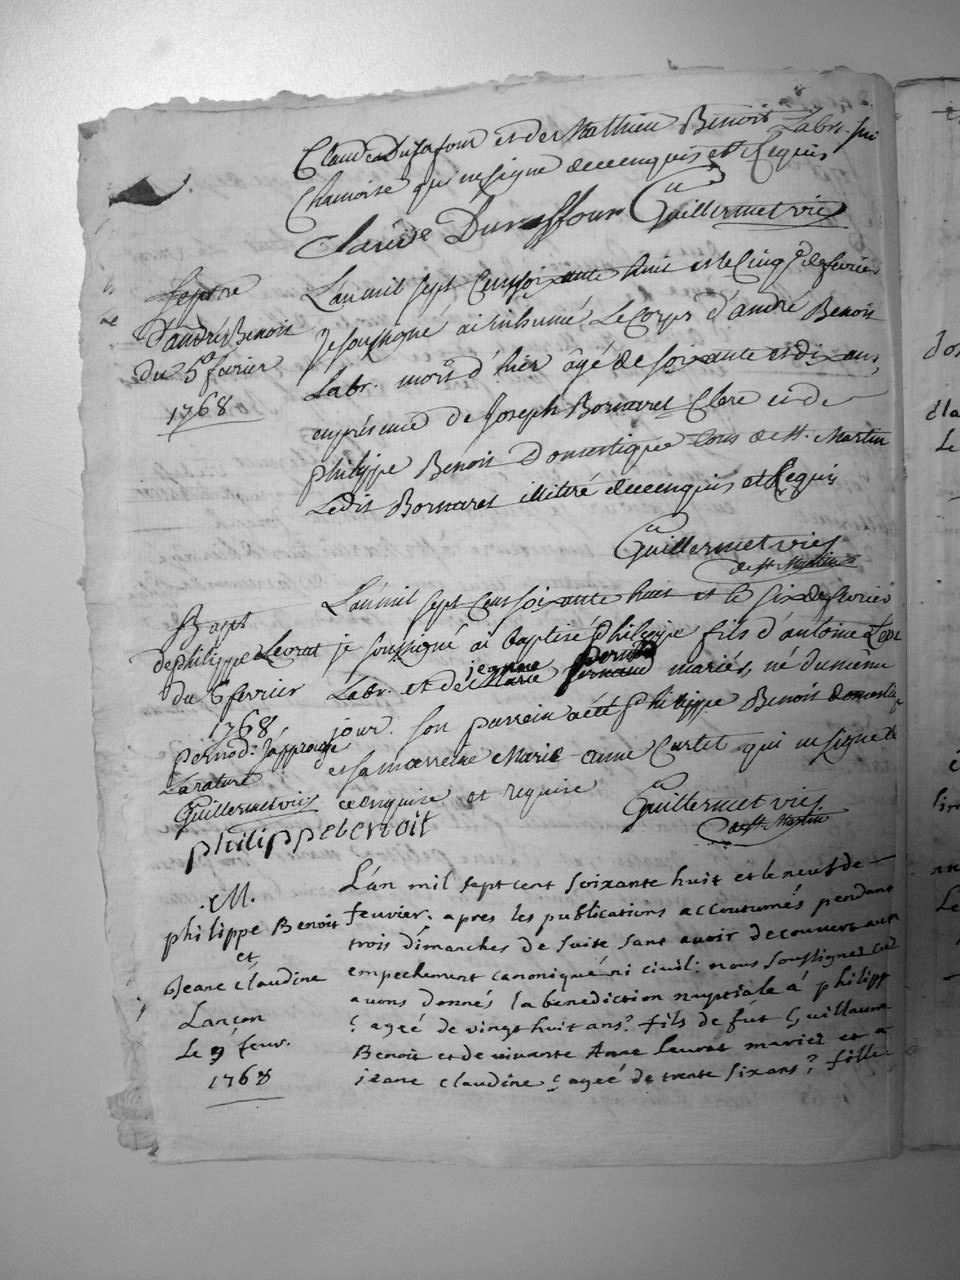 Claude Dufafour et de Mathieu Benoit Labr. qui
Chamoise qui ne signe de ce enquis et Requis
Claude Duraffour Guillermet vic
Sepre
d'andré Benoit
du 5e fevrier
1768
L'an mil sept cent soixante huit et le cinq de fevrier
Je soussigné ai inhumé Le corps d'andré Benoit
Labr. mort d'hier âgé de soixante et dix ans,
en présence de Joseph Bornaret Clerc et de
philippe Benoit Domestique tous de St. Martin
Ledit Bornaret illitéré de ce enquis et Requis
Guillermet vic
de St. Martin
Bapt
de philippe Levrat
du 6 fevrier
1768
pernod: J'approuve
La rature
Guillermet vic
L'an mil sept cent soixante huit et le six de fevrier
je soussigné ai baptisé philippe fils d'antoine Levr
Labr. et de jeanne Marie pernod mariés, né du même
jour. Son parrein a été philippe Benoit domestiq
et sa marreine Marie anne Curtet qui ne signe de
ce enquise et requise Guillermet vic
de St. Martin
philippe benoit
M.
philippe Benoit
et
Jeane claudine
Lançon
Le 9 feuv.
1768
L'an mil sept cent soixante huit et le neuf de
feuvier. apres les publications accoutumés pendant
trois dimanches de suite sans avoir decouvert aucun
empechement canonique ni civil: nous soussigné curé
avons donnés la benediction nuptiale à philipp
( ageé de vingt huit ans) fils de fût Guillaume
Benoit et de vivante Anne Levrat mariez et à
jeane claudine ( ageé de trente six ans) fille